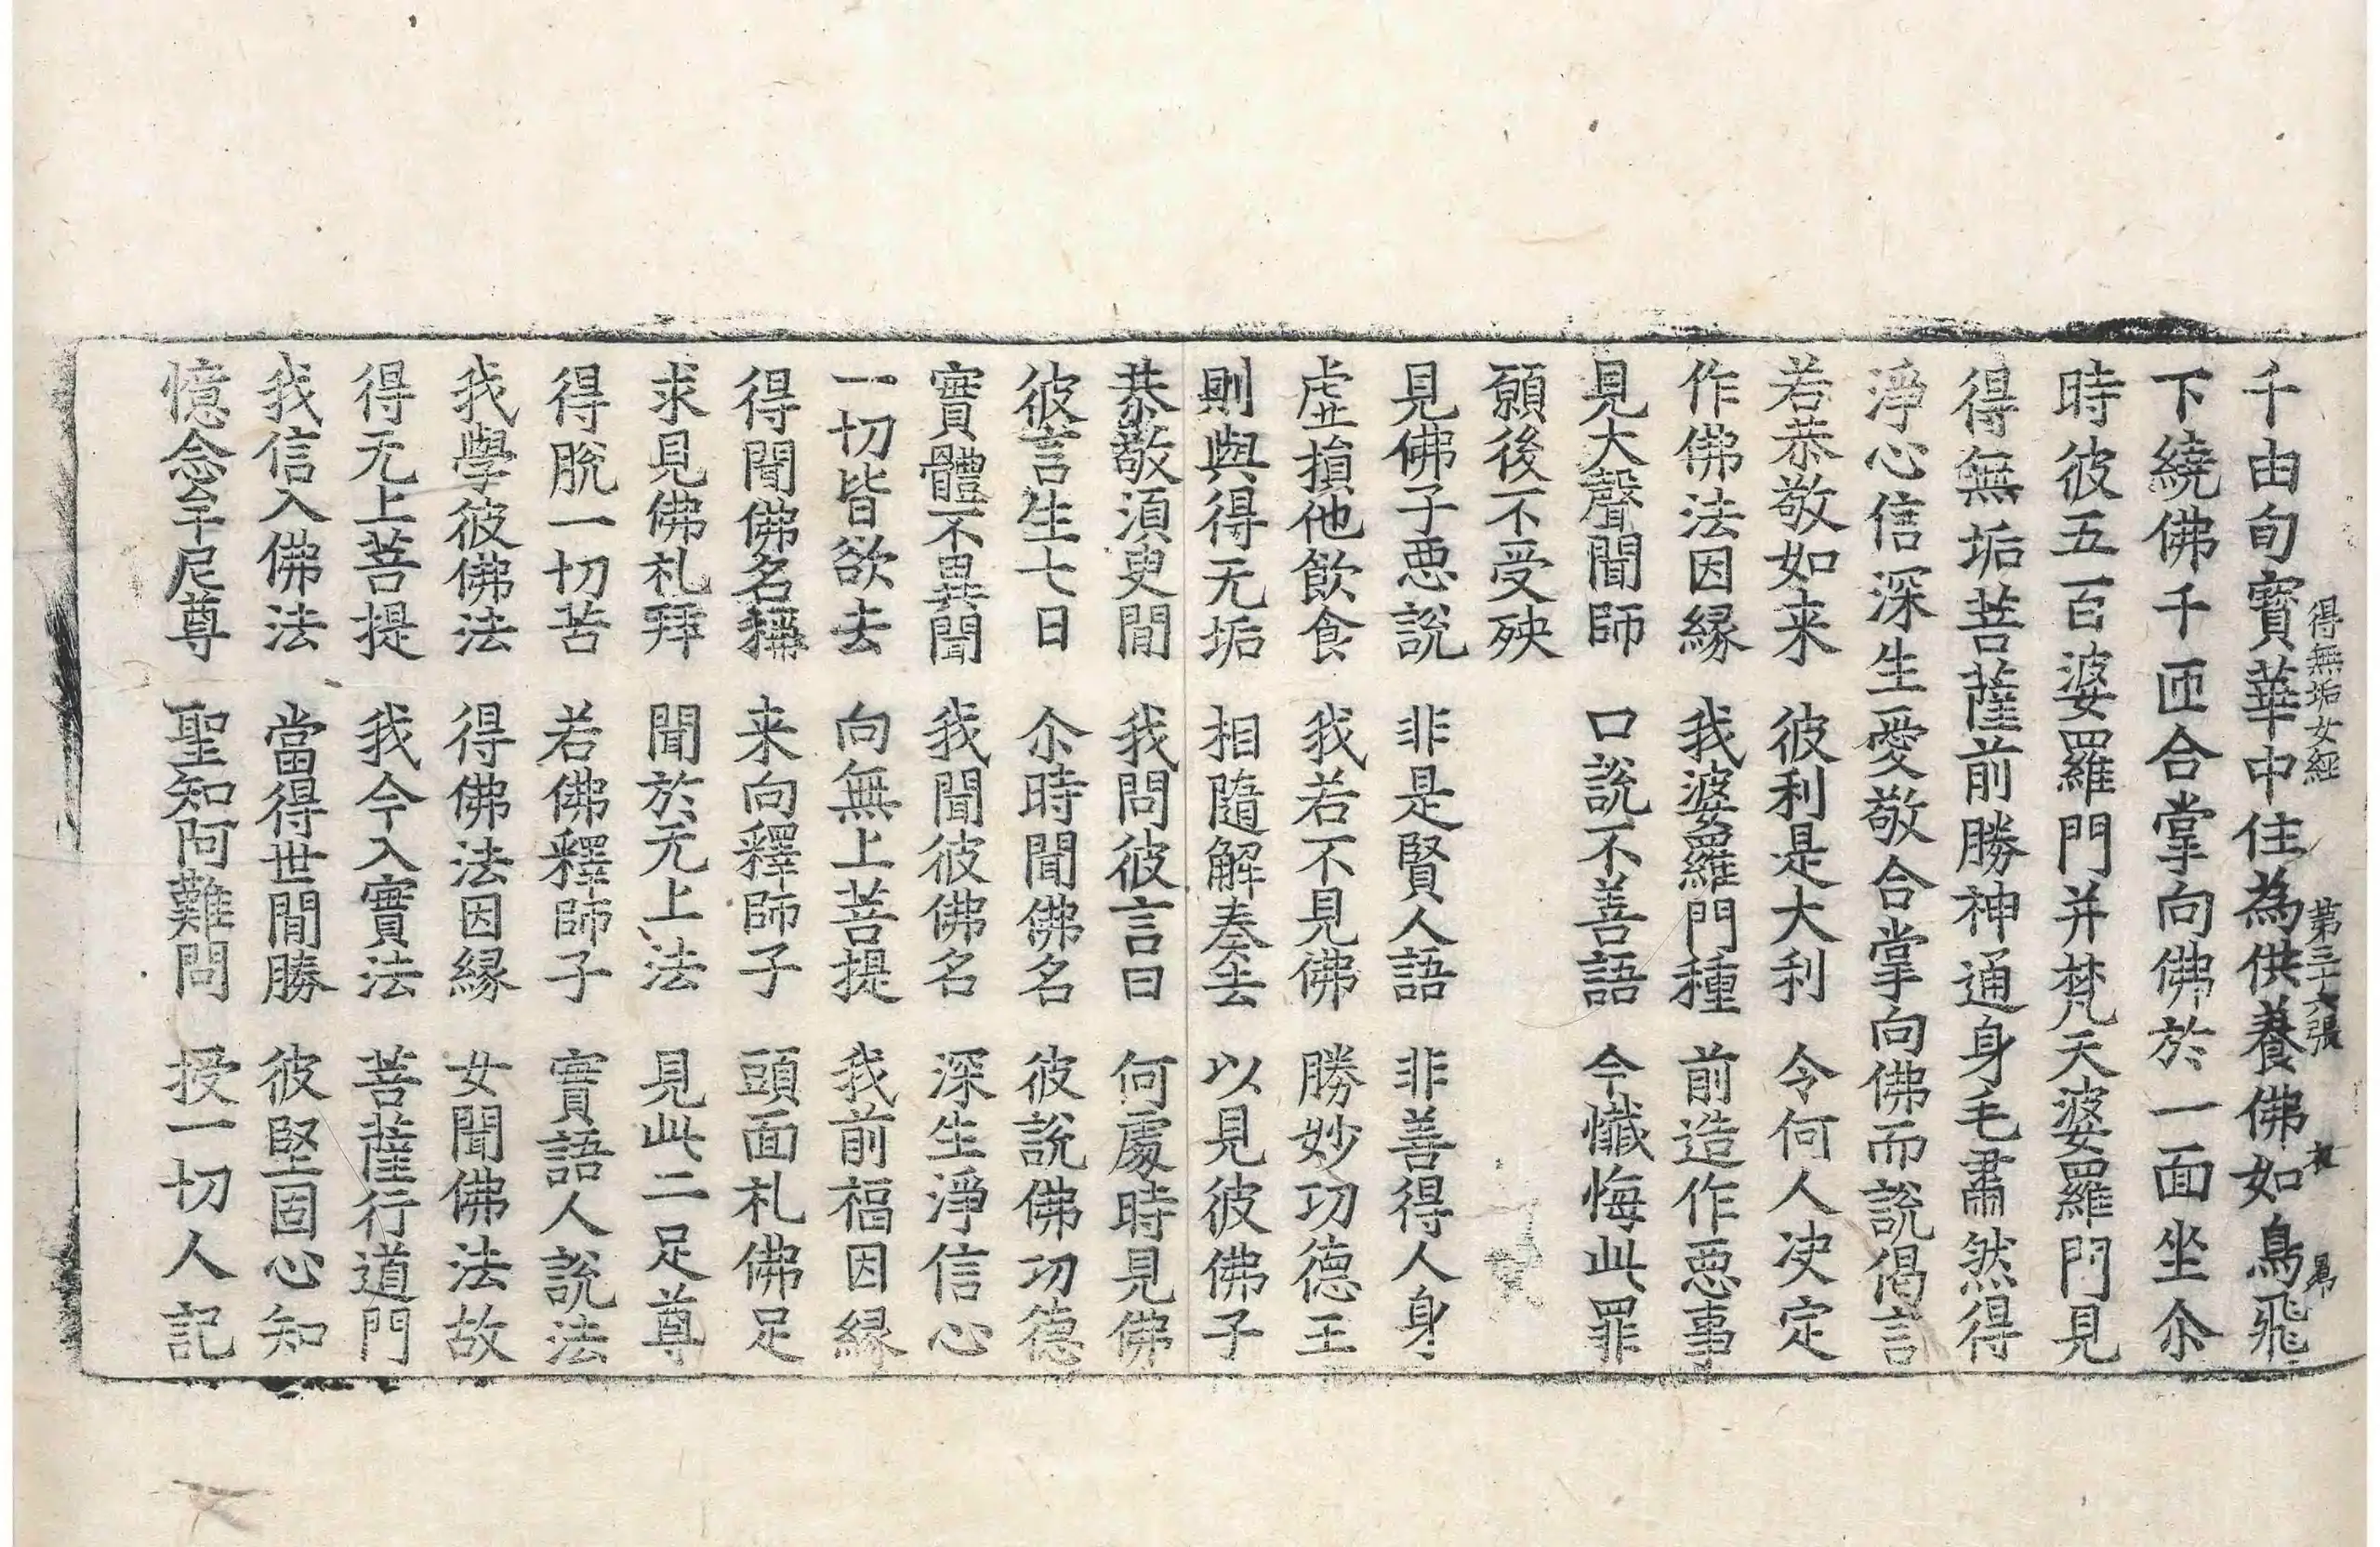 得無垢女經 第三十六張
千由旬寳華中住為供養佛如鳥飛
下繞佛千匝合掌向佛於一面坐尒
時彼五百婆羅門并梵天婆羅門見
得無垢菩薩前勝神通身毛肅然得
淨心信深生愛敬合掌向佛而說偈言
若恭敬如来 彼利是大利 令何人决定
作佛法因緣 我婆羅門種 前造作惡事
見大聲聞師 口說不善語 今懺悔此罪
願後不受殃
見佛子惡說 非是賢人語 非善得人身
虛損他飲食 我若不見佛 勝妙功德王
則與得无垢 相隨解奏去 以見彼佛子
恭敬須臾間 我問彼言曰 何處時見佛
彼言生七日 尒時聞佛名 彼說佛功德
實體不異聞 我聞彼佛名 深生淨信心
一切皆欲去 向無上菩提 我前福因緣
得聞佛名稱 来向釋師子 頭面礼佛足
求見佛礼拜 聞於无上法 見此二足尊
得脫一切苦 若佛釋師子 實語人說法
我學彼佛法 得佛法因緣 女聞佛法故
得无上菩提 我今入實法 菩薩行道門
我信入佛法 當得世間勝 彼堅固心知
憶念牟尼尊 聖知阿難問 授一切人記